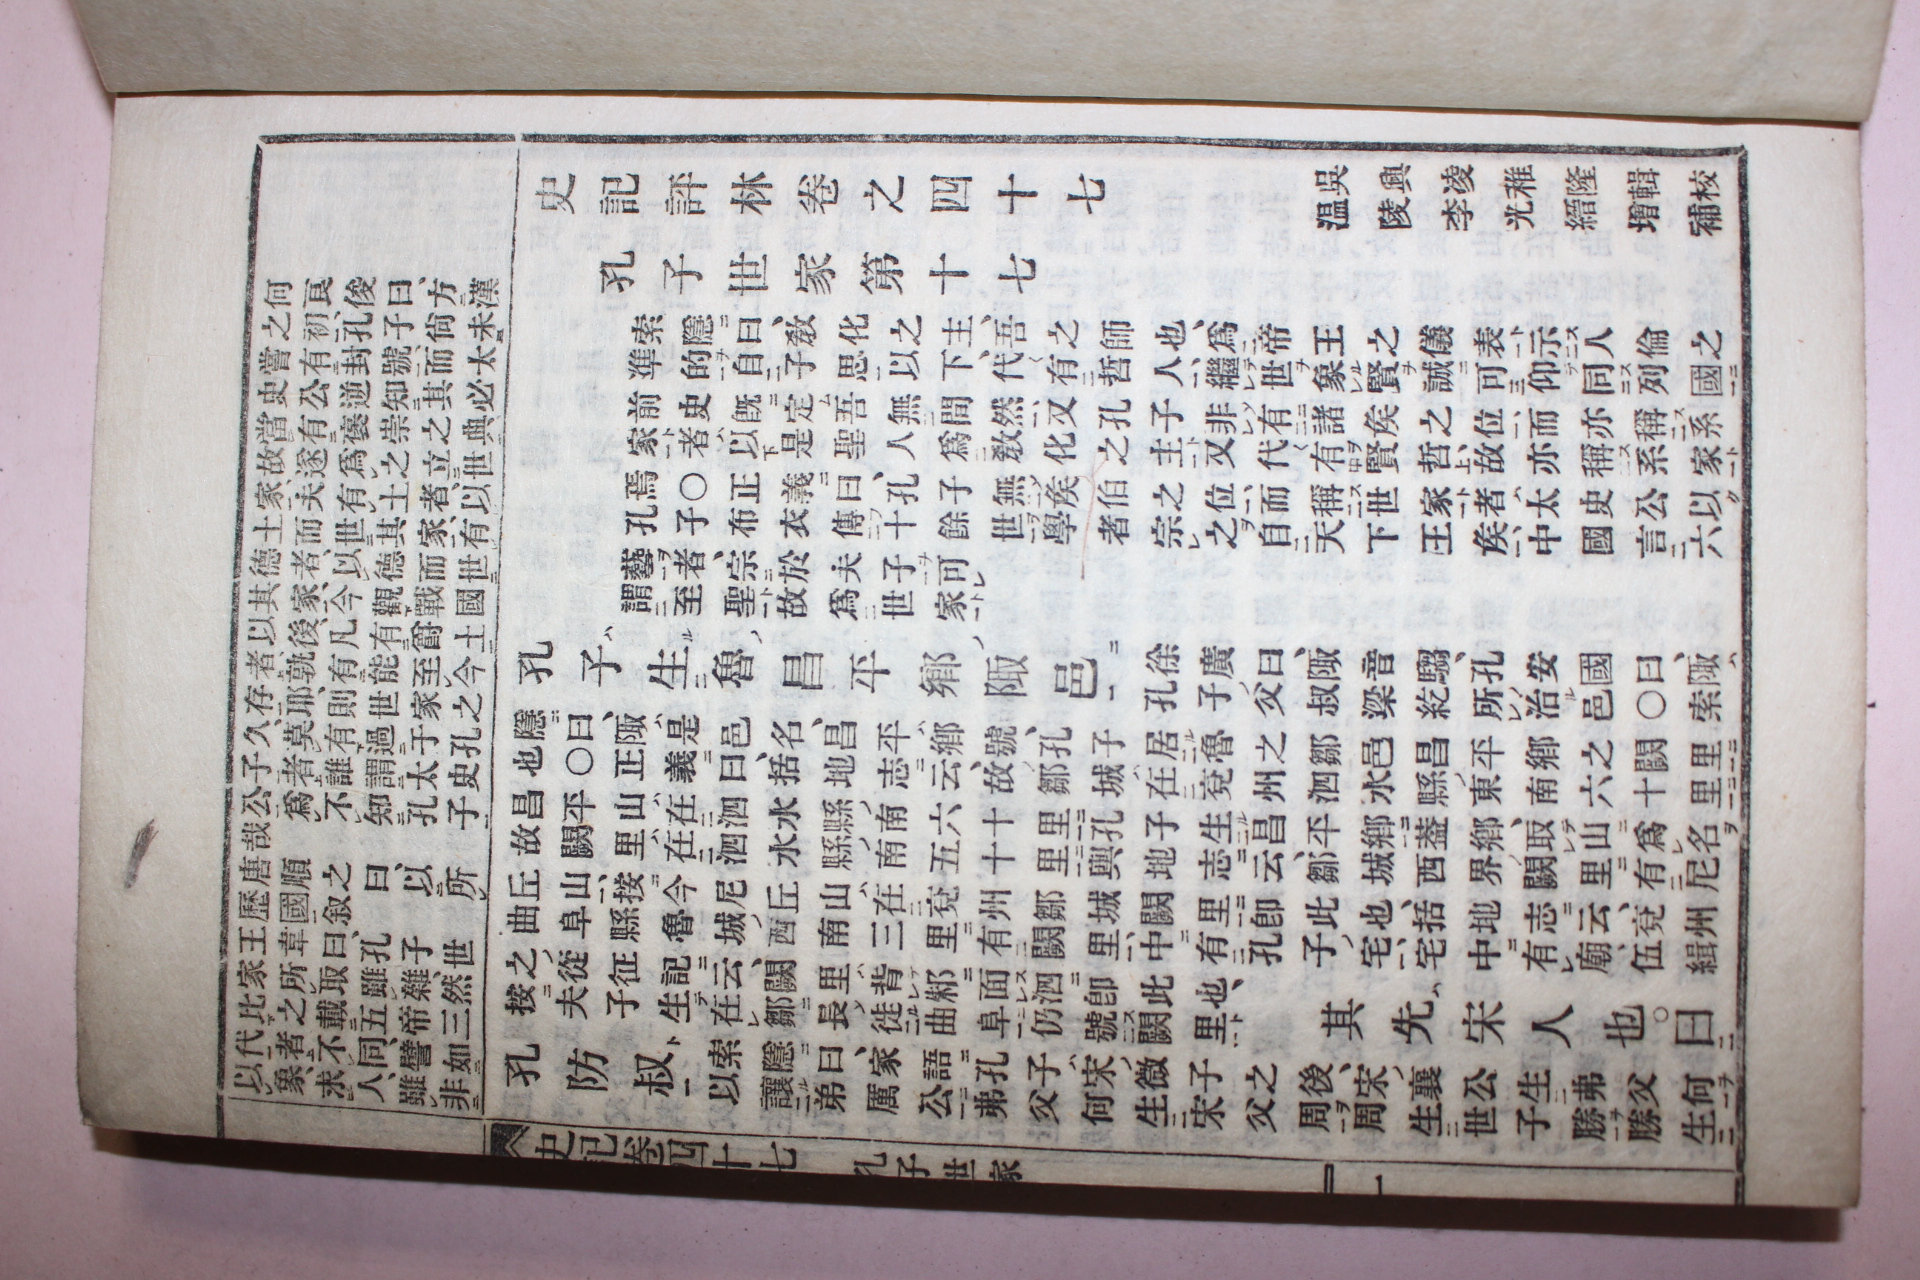 何良俊曰、方漢
之初、孔子尚未
嘗有封號、而太
史公逆知其必
當有褒崇之典
故遂爲之立世
家、夫有土者、以
土而世其家、有
德者、以德而世
其家、今觀戰國
以後、凡有爵土
者、孰有能至今
存耶、則世家之
久、莫有過于孔
子者、誰謂太史
公爲不知孔子
哉
唐順之曰、以所
歷國叙
王韋曰、孔子世
家所取雖雜、然
比之載五帝三
代者不同、譬如
以象求人、雖非
史記評林卷之四十七
吳興凌稚隆輯校
温陵李光縉增補
孔子世家第十七
索隱曰、敎化之主、吾之師也、爲帝王之儀表示人倫之
準的自子思以下、代〻有哲人、繼世象賢誠可仰同列國
前史既定吾無間然、又孔子非有諸矦之位、而亦稱系
家者以是聖人爲敎化之主又代〻有賢哲、故亦稱系家
焉〇正義曰、孔子無矦伯之位、而稱世家者太史公以
孔子布衣傳十餘世學者宗之自天下王矦、中國言六
藝者、宗於夫子可
謂至聖故爲世家
孔子生魯昌平鄉陬邑
徐廣曰、陬音騶、孔安國曰、陬
孔子父叔梁紇所治邑〇索
隱曰、陬是邑名、昌平鄉號、孔子居魯之鄒邑昌平鄉之闕里
也〇正義曰、括地志云、故鄒城在兗州泗水縣東南六十里
昌平山、在泗水縣南六十里孔子生昌平鄉蓋鄉、取山爲名
故闕里、在泗水縣南五十里輿地志云、鄒城西界闕里有尼
丘山、按今尼丘山、在兗州鄒城闕里卽此也、括地志云、兗州
曲阜縣魯城西南三里有闕里、中有孔子宅、宅中有廟、伍緝
之從征記云、闕里背邾面泗卽此也、
按夫子生在鄒長徙曲阜仍號闕里
其先宋人也。曰
孔防叔
索隱曰、家語孔子宋微子之後、宋襄公生弗父何
以讓弟厲公弗父何生宋父周周生世子勝勝生
史記卷四十七 孔子世家 一